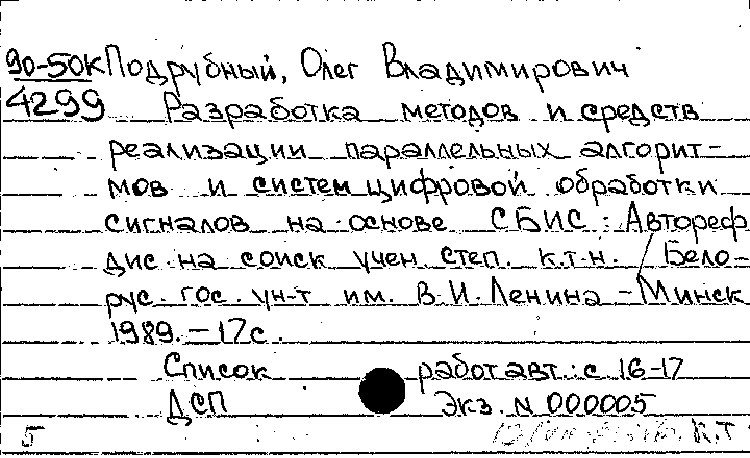 90-50К Подрубный, Олег Владимирович
4299 Разработка методов и средств
реализации параллельных алгорит-
мов и систем цифровой обработки
сигналов на основе СБИС : Автореф
дис. на соиск учен. степ. к.т.н. / Бело-
рус. гос. ун-т им. В.И. Ленина - Минск
1989. - 17с.
Список работ авт.: с. 16-17
ДСП Экз. N 000005
5 К.Т